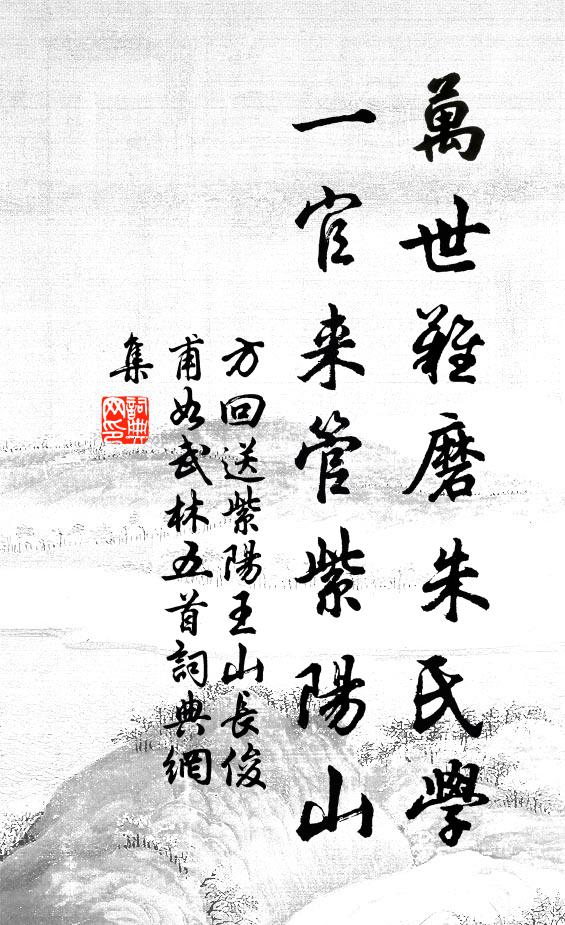 萬世難磨朱氏學
一官来管紫陽山
方回送紫陽王山長俊
甫如武林五首詞典網
集
詞典網印